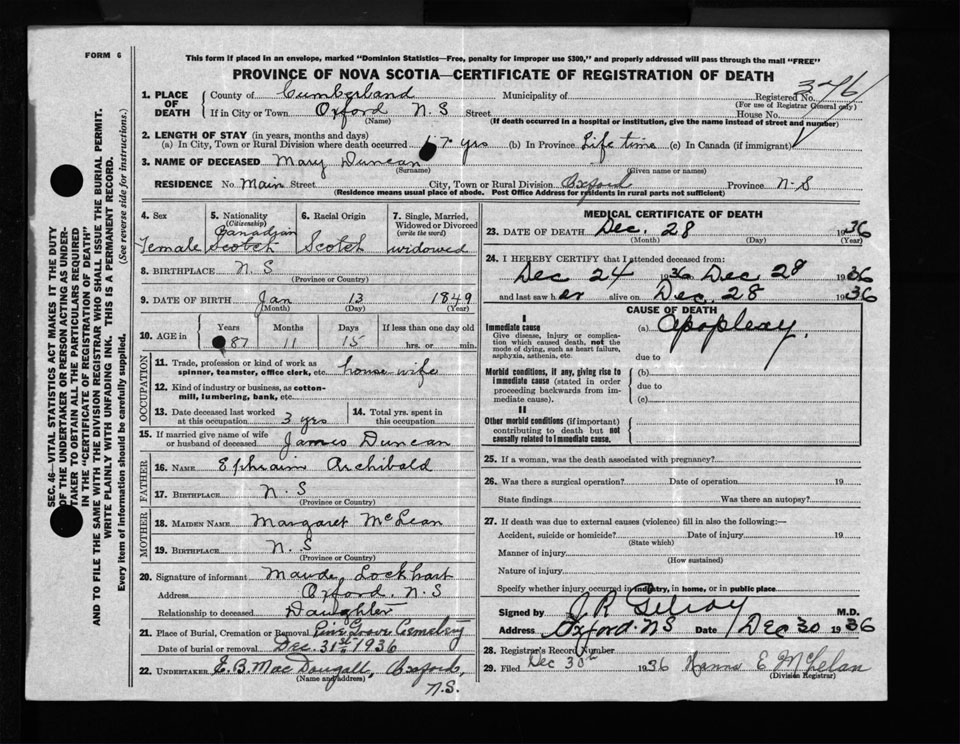 FORM 6
This form if placed in an envelope, marked "Dominion Statistics—Free, penalty for improper use $300," and properly addressed will pass through the mail "FREE"
PROVINCE OF NOVA SCOTIA—CERTIFICATE OF REGISTRATION OF DEATH
SEC. 46—VITAL STATISTICS ACT MAKES IT THE DUTY
OF THE UNDERTAKER OR PERSON ACTING AS UNDER-
TAKER TO OBTAIN ALL THE PARTICULARS REQUIRED
IN THE "CERTIFICATE OF REGISTRATION OF DEATH"
AND TO FILE THE SAME WITH THE DIVISION REGISTRAR WHO SHALL ISSUE THE BURIAL PERMIT.
WRITE PLAINLY WITH UNFADING INK. THIS IS A PERMANENT RECORD.
Every item of information should be carefully supplied. (See reverse side for instructions.)
1. PLACE OF DEATH
County of Cumberland Municipality of Registered No. 346
(For use of Registrar General only)
If in City or Town Oxford N.S Street House No.
(Name) (If death occurred in a hospital or institution, give the name instead of street and number)
2. LENGTH OF STAY (in years, months and days)
(a) In City, Town or Rural Division where death occurred 7 yrs (b) In Province Life time (c) In Canada (if immigrant)
3. NAME OF DECEASED Mary Duncan
(Surname) (Given name or names)
RESIDENCE No. Main Street City, Town or Rural Division Oxford Province N-S
(Residence means usual place of abode. Post Office Address for residents in rural parts not sufficient)
4. Sex Female
5. Nationality (Citizenship) Canadian Scotch
6. Racial Origin Scotch
7. Single, Married, Widowed or Divorced (write the word) widowed
8. BIRTHPLACE N.S
(Province or Country)
9. DATE OF BIRTH Jan 13 1849
(Month) (Day) (Year)
10. AGE in Years Months Days If less than one day old
87 11 15 hrs. or min.
OCCUPATION
11. Trade, profession or kind of work as spinner, teamster, office clerk, etc. house wife
12. Kind of industry or business, as cotton-mill, lumbering, bank, etc.
13. Date deceased last worked at this occupation 3 yrs
14. Total yrs. spent in this occupation
15. If married give name of wife or husband of deceased James Duncan
FATHER
16. NAME Ephraim Archibald
17. BIRTHPLACE N.S
(Province or Country)
MOTHER
18. MAIDEN NAME Margaret McLean
19. BIRTHPLACE N.S
(Province or Country)
20. Signature of informant Maude Lockhart
Address Oxford, N.S
Relationship to deceased Daughter
21. Place of Burial, Cremation or Removal Pine Grove Cemetery
Date of burial or removal Dec. 31st 1936
22. UNDERTAKER E.B. MacDougall, Oxford, N.S.
(Name and address)
MEDICAL CERTIFICATE OF DEATH
23. DATE OF DEATH Dec. 28 1936
(Month) (Day) (Year)
24. I HEREBY CERTIFY that I attended deceased from:
Dec 24 1936 Dec 28 1936
and last saw her alive on Dec. 28 1936
CAUSE OF DEATH
I
Immediate cause
Give disease, injury or complication which caused death, not the mode of dying, such as heart failure, asphyxia, asthenia, etc.
(a) Apoplexy.
due to
Morbid conditions, if any, giving rise to immediate cause (stated in order proceeding backwards from immediate cause).
(b)
due to
(c)
II
Other morbid conditions (if important) contributing to death but not causally related to immediate cause.
25. If a woman, was the death associated with pregnancy?
26. Was there a surgical operation? Date of operation 19
State findings Was there an autopsy?
27. If death was due to external causes (violence) fill in also the following:—
Accident, suicide or homicide? Date of injury 19
(State which)
Manner of injury
(How sustained)
Nature of injury
Specify whether injury occurred in industry, in home, or in public place
Signed by J.R. Gilroy M.D.
Address Oxford-NS Date Dec 30 1936
28. Registrar's Record Number
29. Filed Dec 30th 1936 E. McLelan
(Division Registrar)